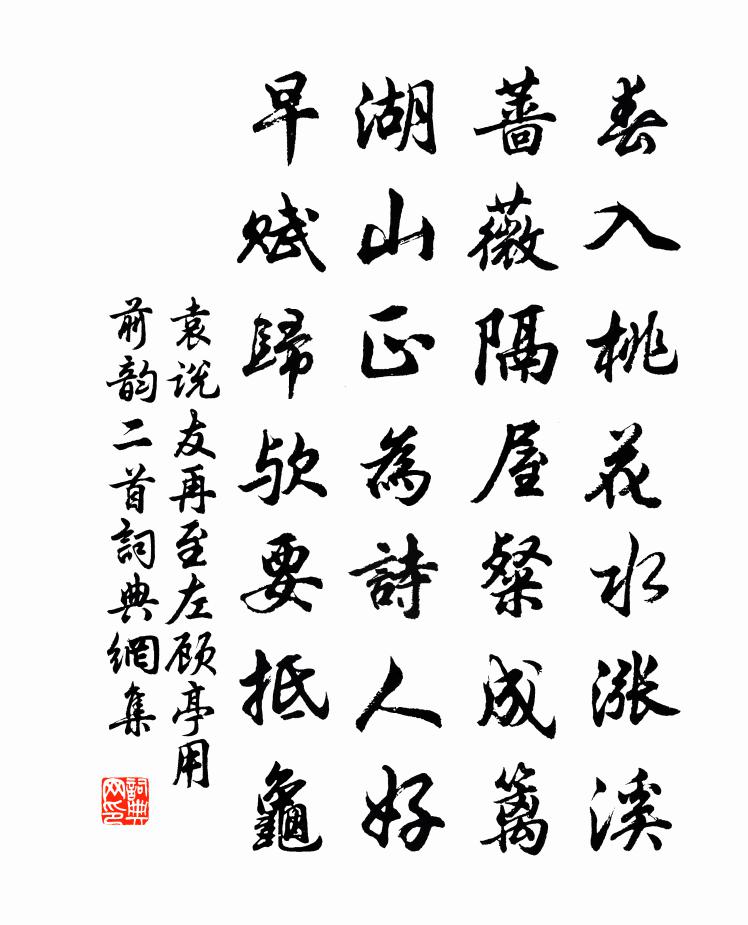 春入桃花水漲溪
薔薇隔屋粲成籬
湖山正為詩人好
早賦歸歟要抵龜
袁说友再至左顾亭用
前韵二首詞典網集
詞典網印